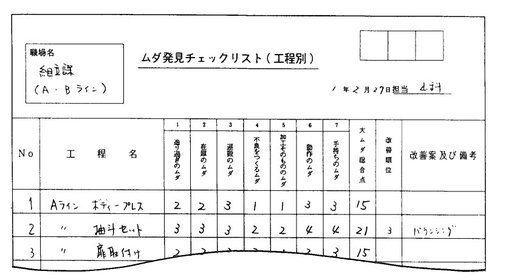 ムダ発見チェックリスト(工程別)
職場名
組立課
(A・Bライン)
1年2月27日担当
No 工程名 1 造り過ぎのムダ 2 在庫のムダ 3 運搬のムダ 4 不良をつくるムダ 5 加工そのもののムダ 6 動作のムダ 7 手持ちのムダ 大ムダ総合点 改善順位 改善案及び備考
1 Aライン ボディープレス 2 2 3 1 1 3 3 15
2 〃 抽斗セット 3 3 3 2 2 4 4 21 3 バランシング
3 〃 扉取付け 2 2 3 2 3 15